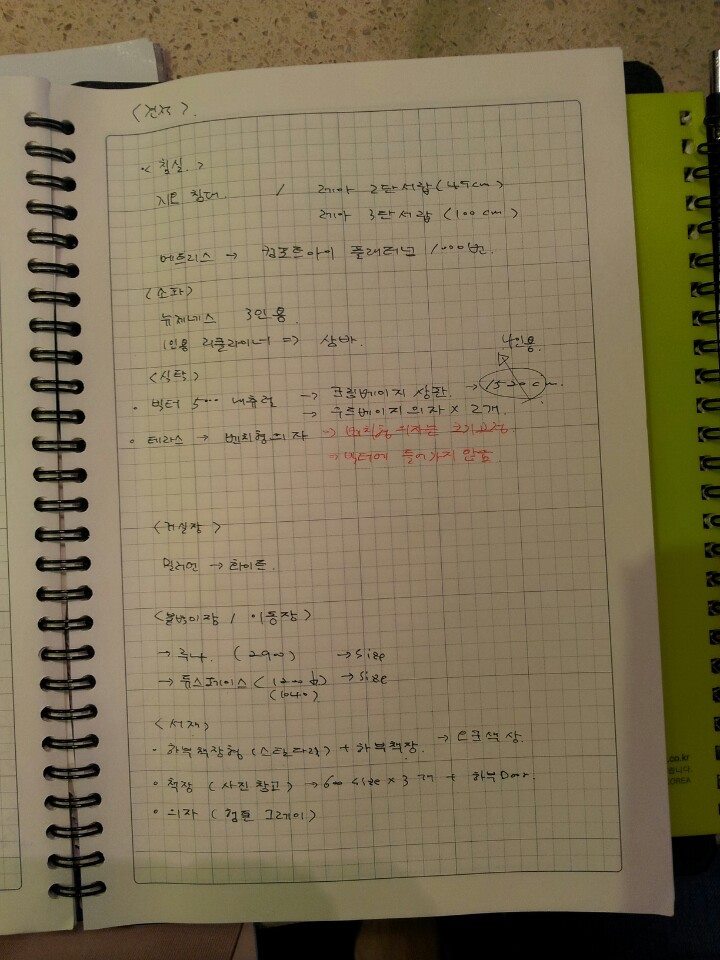 <견적>.
<침실.>
지은 침대. / 레아 2단서랍 (49cm)
레아 3단서랍 (100cm)
메트리스 → 컴포트아이 플래티넘 1000번.
(소파)
뉴제네스 3인용.
1인용 리클라이너 => 상바.
4인용.
<식탁>
• 빅터 500 내츄럴 → 크림베이지 상판. → 1500cm.
→ 우드베이지 의자 × 2개.
• 테라스 → 벤치형의자 → 벤치형 의자는
→ 빅터에 들어가지 않음
<거실장>
밀러언 → 화이트.
<붙박이장 / 이동장>
→ 루나. (2900) → size
→ 투스페이스 (1200) → size
(640)
<서재>
• 하부책장형 (스틸다리) + 하부책장. → 색상.
• 책장 (사진참고) → 600 size × 3개 + 하부Door.
• 의자 ( 그레이)
.co.kr
니다.
KOREA